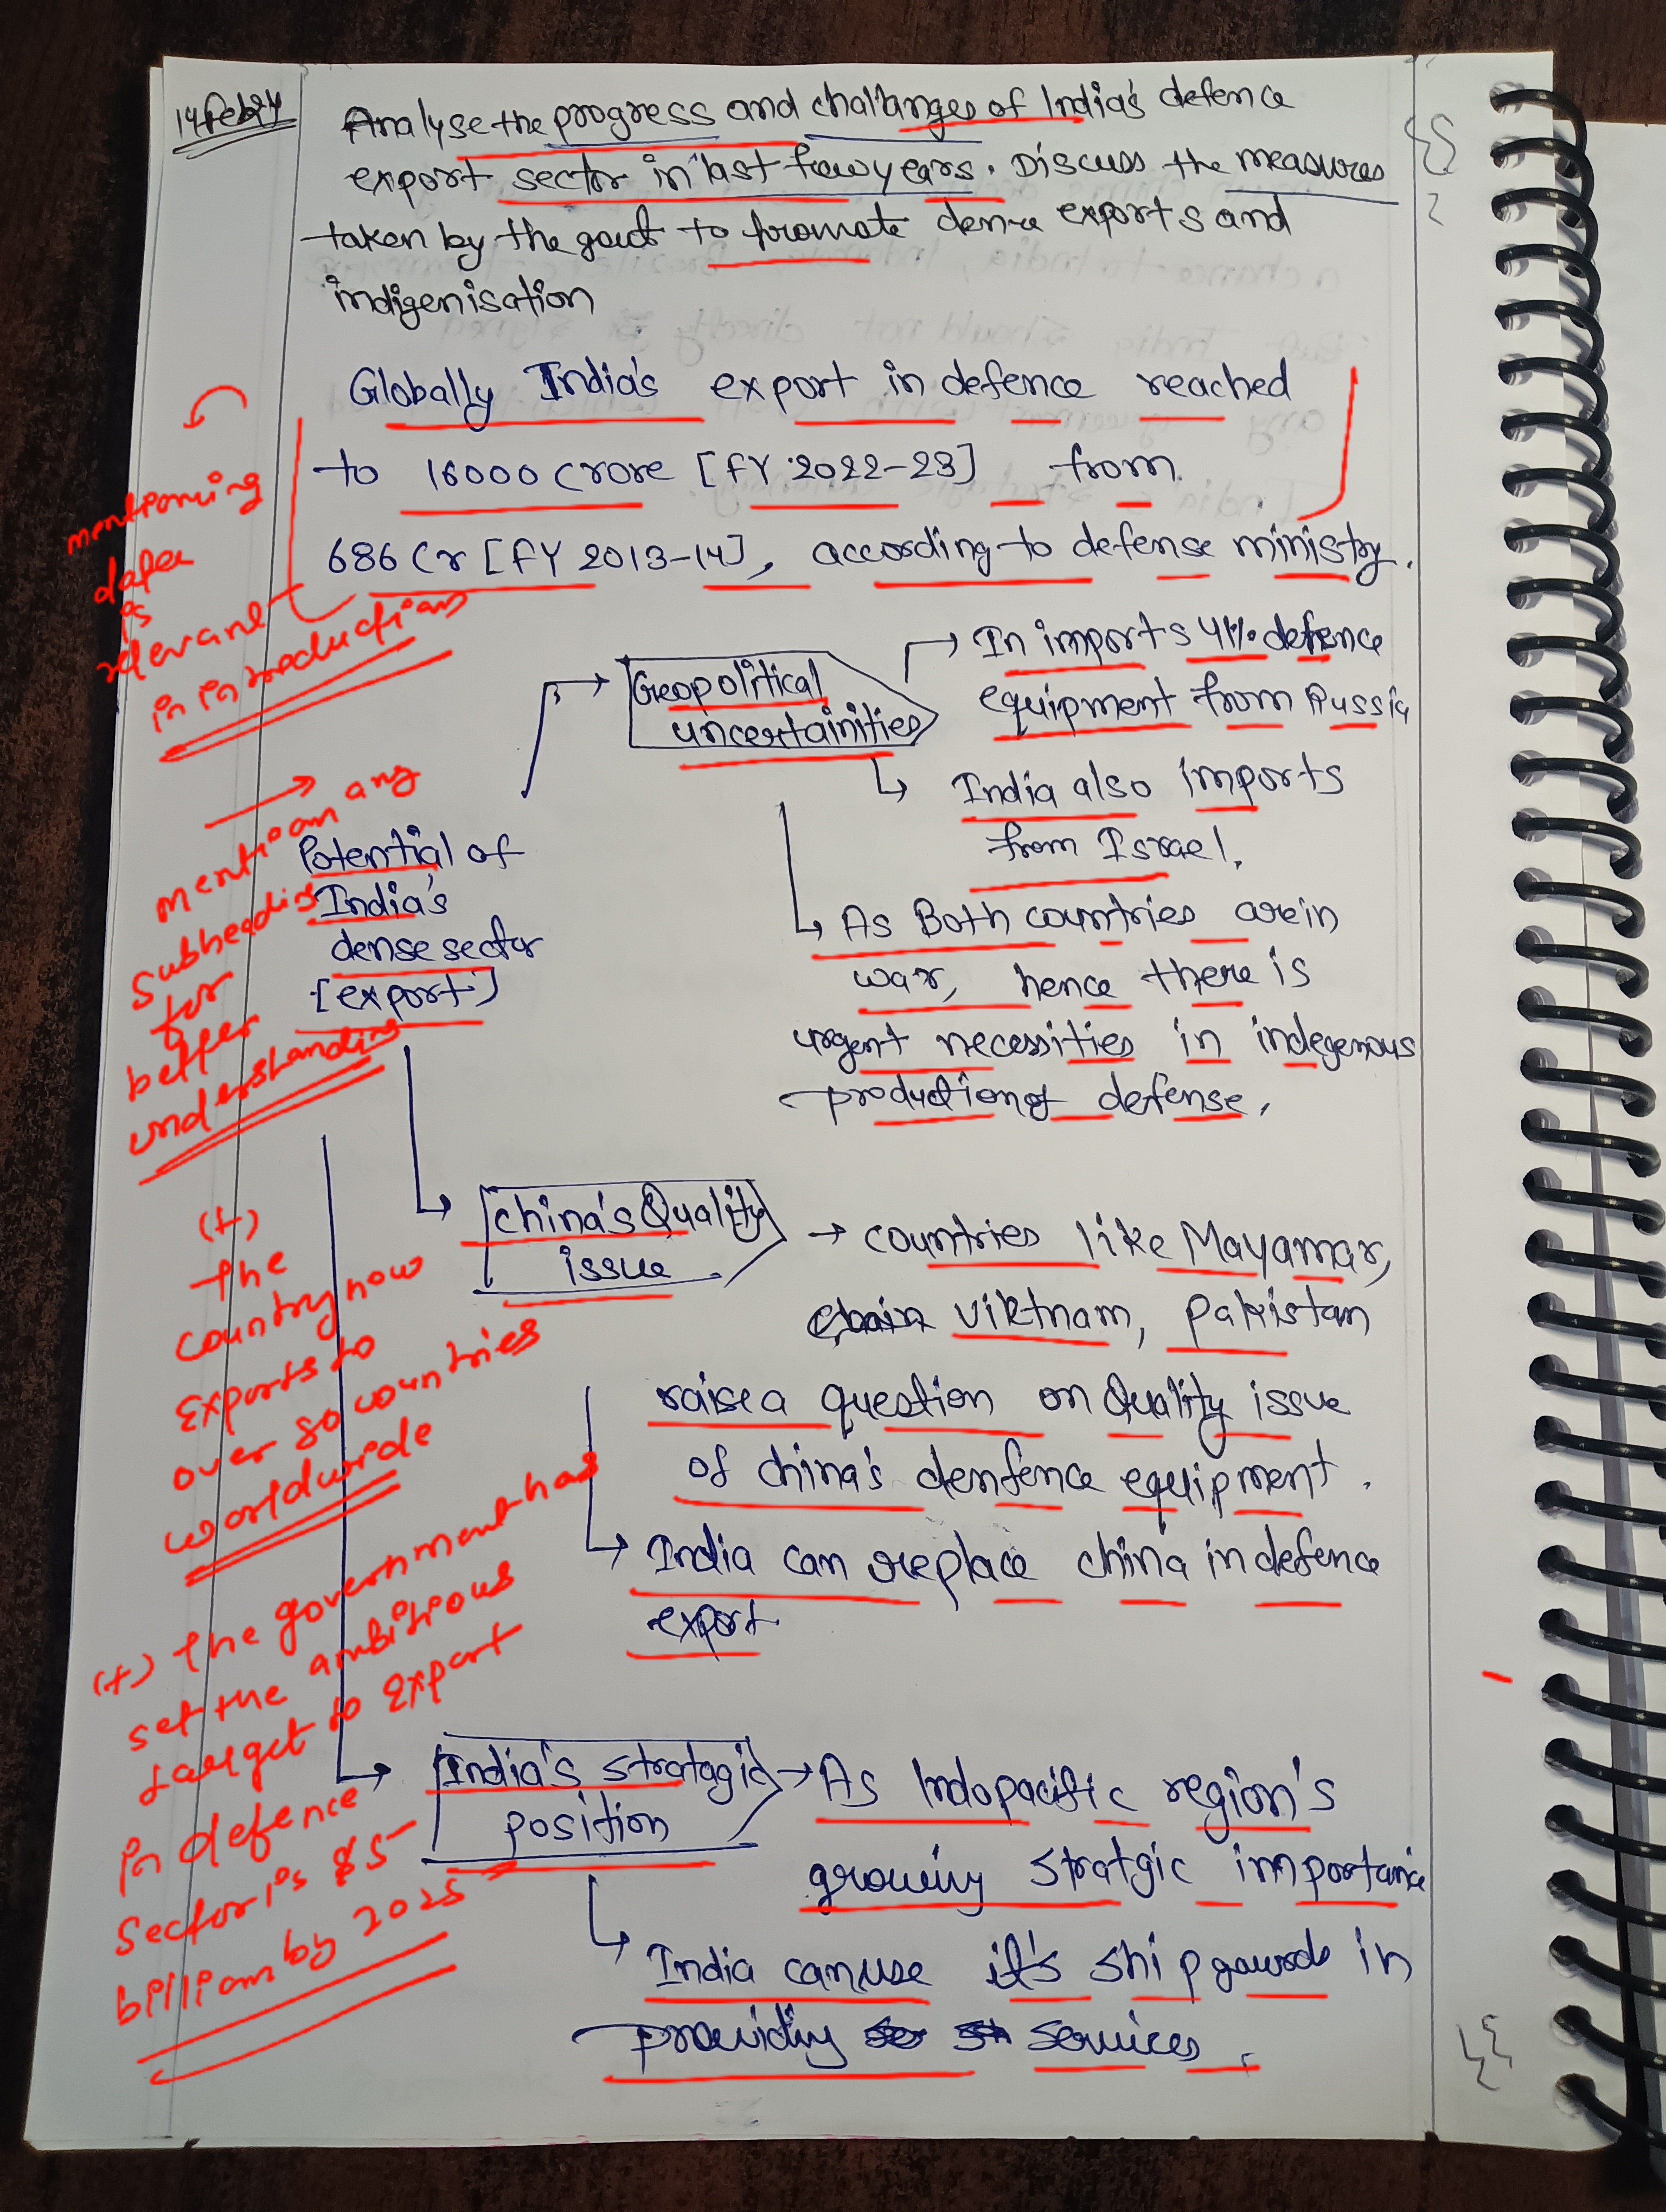 14 Feb 24
Analyse the progress and challanges of India's defence
export sector in last few years. Discuss the measures
taken by the govt to promote dence exports and
indigenisation
Globally India's export in defence reached
to 16000 Crore [FY 2022-23] from
686 Cr [FY 2013-14], according to defense ministry.
mentioning
data
is
relevant
in introduction
Geopolitical
uncertainities
→ In imports 41% defence
equipment from Russia
↳ India also imports
from Israel.
↳ As Both countries are in
war, hence there is
urgent necessities in indegenous
production of defense.
mention any
subheading
for
better
understanding
Potential of
India's
dense sector
[export]
China's Quality
issue
→ countries like Mayamar,
Vietnam, Pakistan
raise a question on Quality issue
of china's denfence equipment.
↳ India can replace china in defence
export
(+)
the
country now
exports to
over 80 countries
worldwide
(+) the government has
set the ambitious
target to export
in defence
sector is $5
billion by 2025
India's stratagic
position
→ As Indopacific region's
growing stratgic importance
↳ India can use it's shipyards in
providing services.